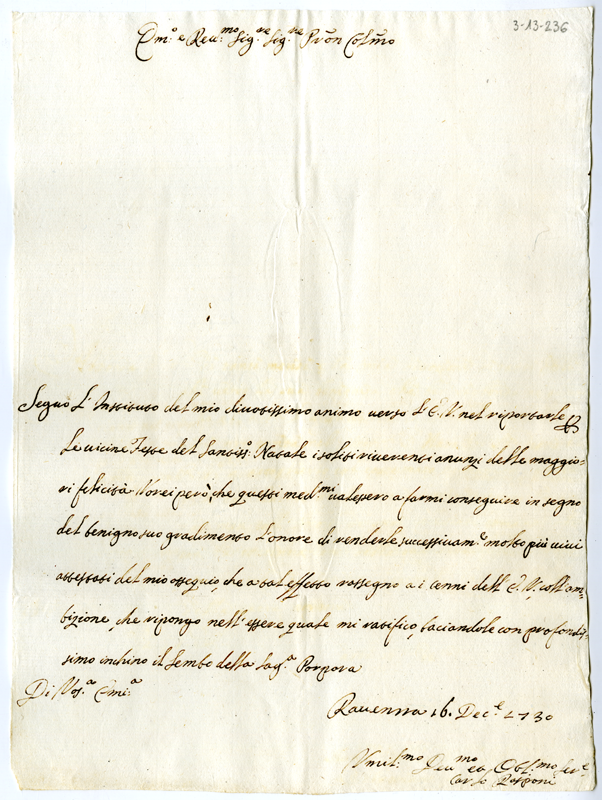 3-13-236
Em.º e Reu.mo Sig.re Sig.re Prōn Colmo
Seguo L'Instituto del mio diuotissimo animo uerso L'E.V. nel riportarle p
Le uicine Feste del Santiss.º Natale i soliti riuerenti anunzi delle maggio-
ri felicità. Vorei però, che questi med.mi ualessero a farmi conseguire in segno
del benigno suo gradimento L'onore di renderle successiuam.e molto più uiui
attestati del mio ossequio, che a tal effetto rassegno a i cenni dell'E.V. coll'am-
bizione, che ripongo nell'essere quale mi ratifico, baciandole con profondis-
simo inchino il Lembo della Sag.a Porpora
Di Vos.a Emi.a
Rauenna 16. Dec.e 1730
Vmil.mo Deu.mo ed Obl.mo Ser.e
Carlo Rasponi